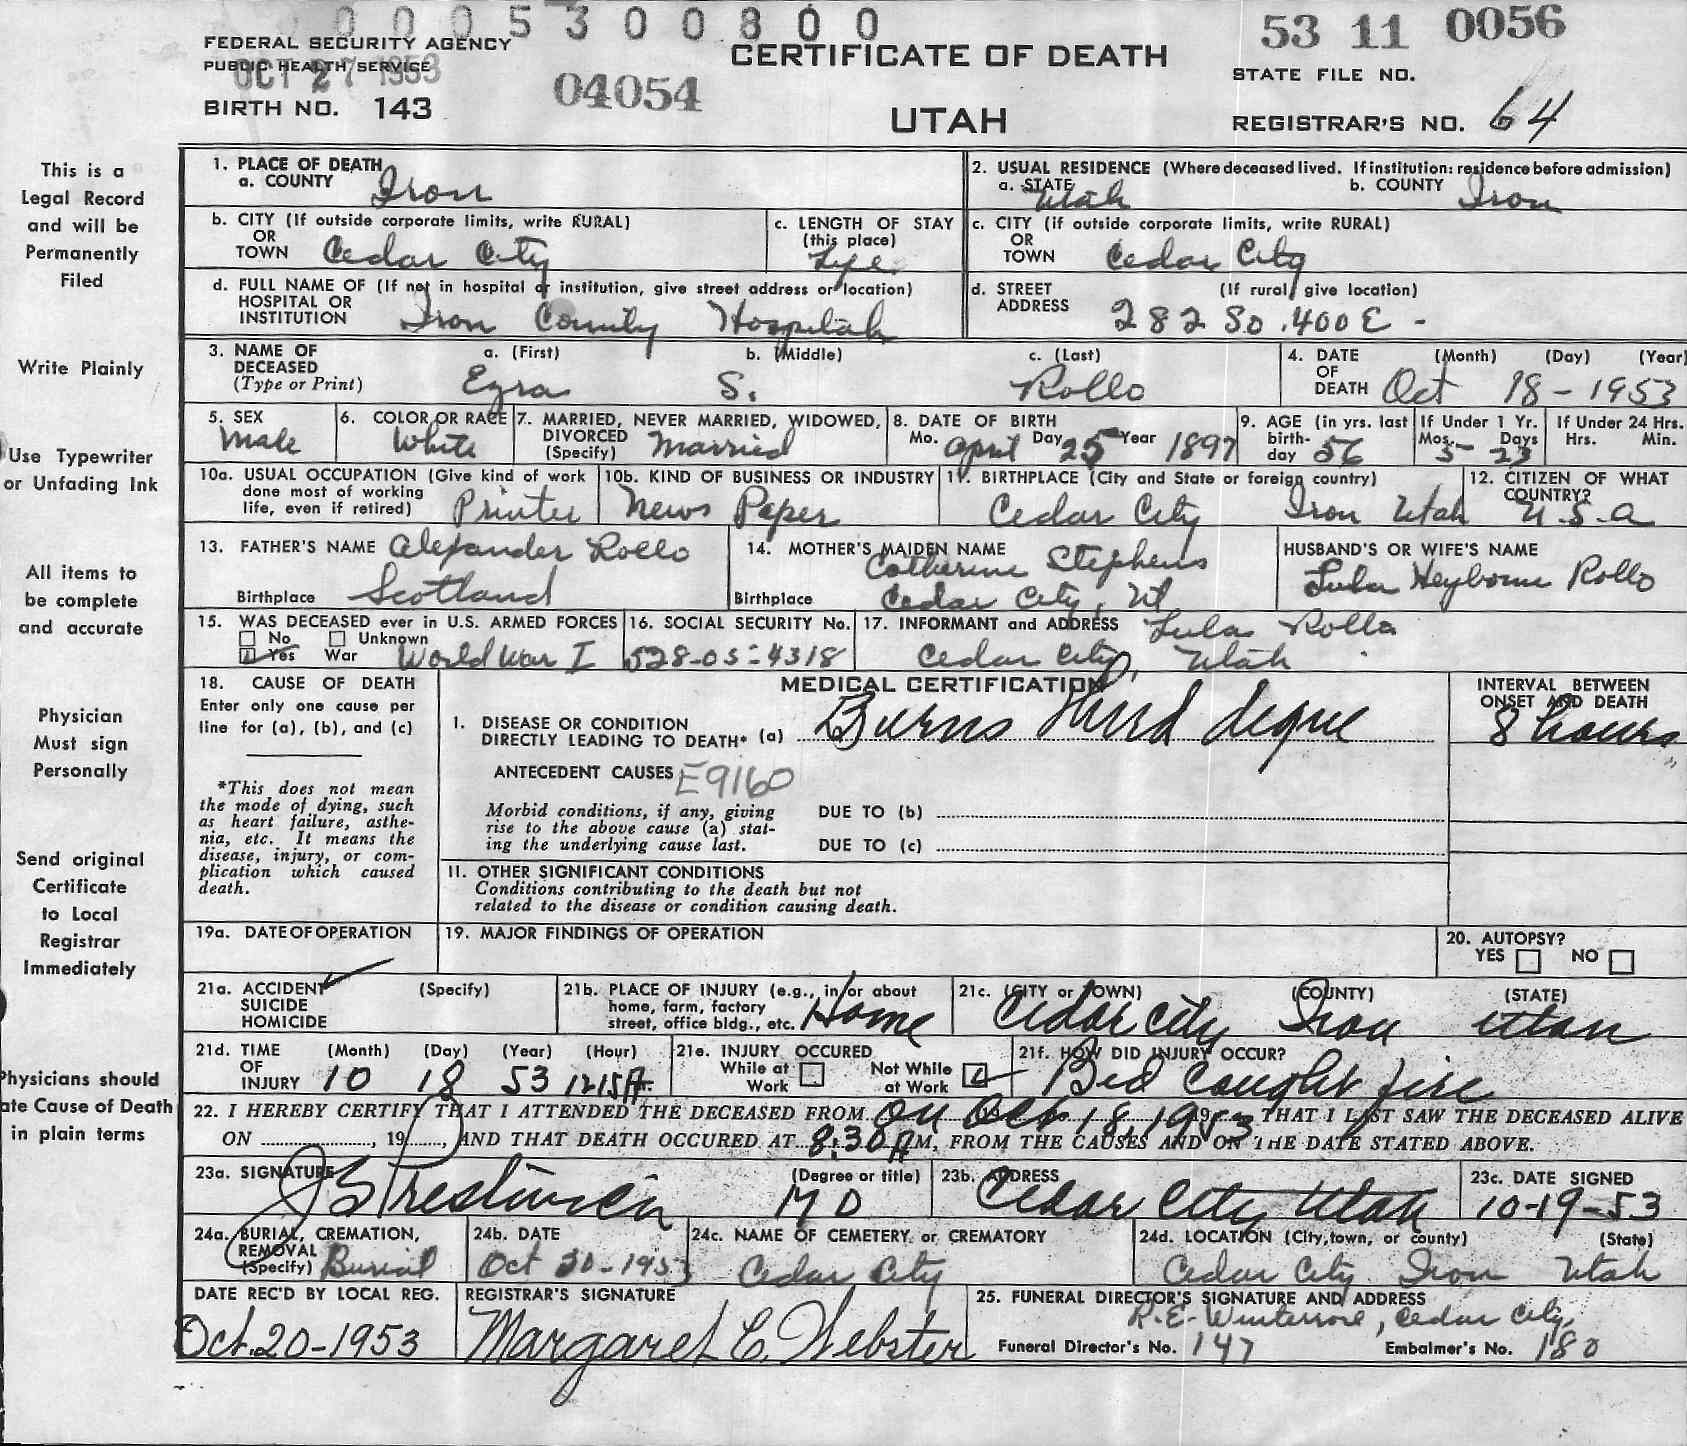 0 0 0 5 3 0 0 8 0 0
FEDERAL SECURITY AGENCY
PUBLIC HEALTH SERVICE
OCT 27 1953
BIRTH NO. 143
04054
CERTIFICATE OF DEATH
UTAH
53 11 0056
STATE FILE NO.
REGISTRAR'S NO. 64
This is a
Legal Record
and will be
Permanently
Filed
Write Plainly
Use Typewriter
or Unfading Ink
All items to
be complete
and accurate
Physician
Must sign
Personally
Send original
Certificate
to Local
Registrar
Immediately
Physicians should
ate Cause of Death
in plain terms
1. PLACE OF DEATH
a. COUNTY Iron
2. USUAL RESIDENCE (Where deceased lived. If institution: residence before admission)
a. STATE Utah b. COUNTY Iron
b. CITY (If outside corporate limits, write RURAL)
OR
TOWN Cedar City
c. LENGTH OF STAY
(this place)
Life
c. CITY (if outside corporate limits, write RURAL)
OR
TOWN Cedar City
d. FULL NAME OF (If not in hospital or institution, give street address or location)
HOSPITAL OR
INSTITUTION Iron County Hospital
d. STREET (If rural, give location)
ADDRESS 282 So. 400 E -
3. NAME OF a. (First) b. (Middle) c. (Last)
DECEASED
(Type or Print) Ezra S. Rollo
4. DATE (Month) (Day) (Year)
OF
DEATH Oct 18 - 1953
5. SEX
Male
6. COLOR OR RACE
White
7. MARRIED, NEVER MARRIED, WIDOWED,
DIVORCED
(Specify) Married
8. DATE OF BIRTH
Mo. April Day 25 Year 1897
9. AGE (in yrs. last
birth-
day 56
If Under 1 Yr.
Mos. Days
5 - 23
If Under 24 Hrs.
Hrs. Min.
10a. USUAL OCCUPATION (Give kind of work
done most of working
life, even if retired) Printer
10b. KIND OF BUSINESS OR INDUSTRY
News Paper
11. BIRTHPLACE (City and State or foreign country)
Cedar City Iron Utah
12. CITIZEN OF WHAT
COUNTRY?
U.S.A
13. FATHER'S NAME Alexander Rollo
Birthplace Scotland
14. MOTHER'S MAIDEN NAME
Catherine Stephens
Birthplace Cedar City, Ut
HUSBAND'S OR WIFE'S NAME
Lula Heyborne Rollo
15. WAS DECEASED ever in U.S. ARMED FORCES
No Unknown
Yes War World War I
16. SOCIAL SECURITY No.
528-05-4318
17. INFORMANT and ADDRESS Lula Rollo
Cedar City, Utah
18. CAUSE OF DEATH
Enter only one cause per
line for (a), (b), and (c)
*This does not mean
the mode of dying, such
as heart failure, asthe-
nia, etc. It means the
disease, injury, or com-
plication which caused
death.
MEDICAL CERTIFICATION
I. DISEASE OR CONDITION
DIRECTLY LEADING TO DEATH* (a) Burns third degree
INTERVAL BETWEEN
ONSET AND DEATH
8 hours
ANTECEDENT CAUSES E9160
Morbid conditions, if any, giving
rise to the above cause (a) stat-
ing the underlying cause last.
DUE TO (b)
DUE TO (c)
II. OTHER SIGNIFICANT CONDITIONS
Conditions contributing to the death but not
related to the disease or condition causing death.
19a. DATE OF OPERATION
19. MAJOR FINDINGS OF OPERATION
20. AUTOPSY?
YES NO
21a. ACCIDENT (Specify)
SUICIDE
HOMICIDE
21b. PLACE OF INJURY (e.g., in or about
home, farm, factory
street, office bldg., etc. Home
21c. (CITY or TOWN) (COUNTY) (STATE)
Cedar City Iron Utah
21d. TIME (Month) (Day) (Year) (Hour)
OF
INJURY 10 18 53 1215A.
21e. INJURY OCCURED
While at Not While
Work at Work
21f. HOW DID INJURY OCCUR?
Bed caught fire
22. I HEREBY CERTIFY THAT I ATTENDED THE DECEASED FROM on Oct 18, 1953 THAT I LAST SAW THE DECEASED ALIVE
ON , 19 , AND THAT DEATH OCCURED AT 8:30 A M, FROM THE CAUSES AND ON THE DATE STATED ABOVE.
23a. SIGNATURE (Degree or title)
MD
23b. ADDRESS
Cedar City Utah
23c. DATE SIGNED
10-19-53
24a. BURIAL, CREMATION,
REMOVAL
(Specify) Burial
24b. DATE
Oct 20-1953
24c. NAME OF CEMETERY or CREMATORY
Cedar City
24d. LOCATION (City, town, or county) (State)
Cedar City Iron Utah
DATE REC'D BY LOCAL REG.
Oct. 20-1953
REGISTRAR'S SIGNATURE
Margaret C. Webster
25. FUNERAL DIRECTOR'S SIGNATURE AND ADDRESS
R.E. , Cedar City,
Funeral Director's No. 147 Embalmer's No. 180